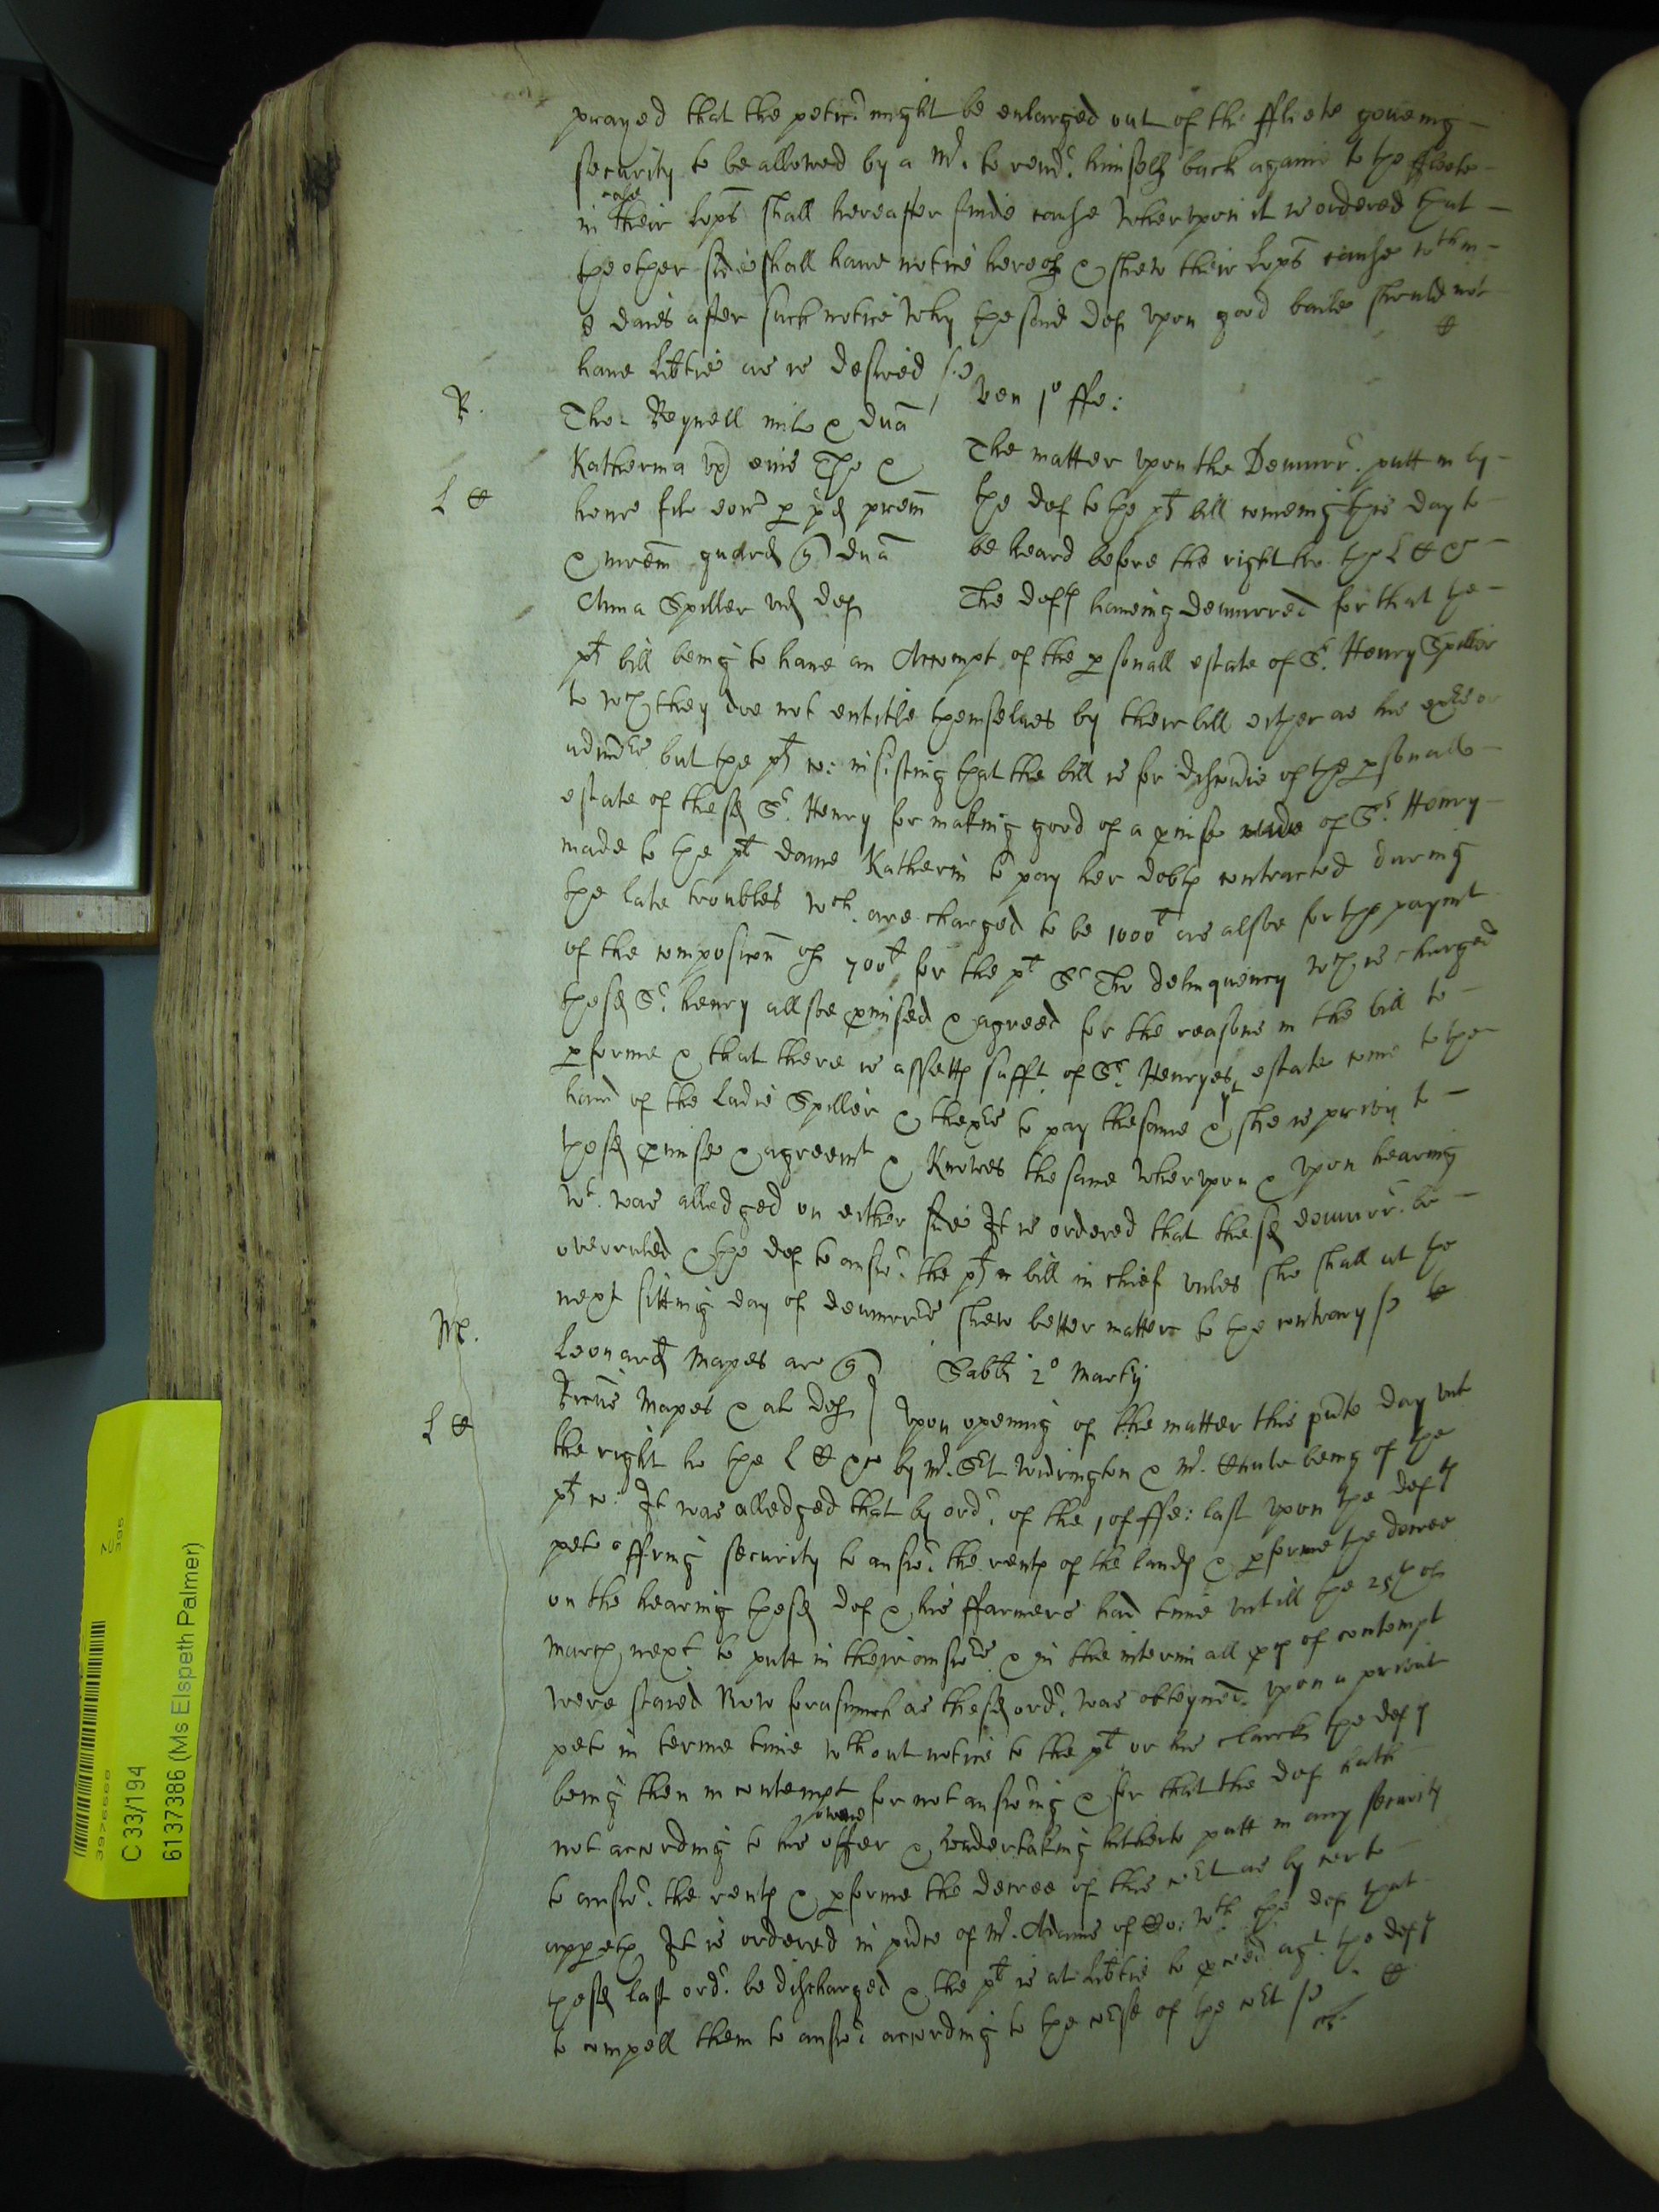 prayed that the peticr might be enlarged out of the ffleete giueing
security to be allowed by a Mr. to rendr himself back againe to the ffleete
in case their Lopps shall hereafter finde cause Wherupon it is ordered that
the other side shall haue notice hereof & shew their Lopps cause wthin
8 daies after such notice Why the said def upon good baile should not
haue libtie as is desired
R.
Tho: Reynell mil & dna
Katherina ux eius &
L C
henr fil eor p pd prem
& mrem guard q dna
Anna Spiller vid def
Ven 1o ffe:
The matter upon the Demurr. putt in by
the def to the plt bill comeing this day to
be heard before the right ho: the L C &
The deft haueing demurred for that the
plt bill being to haue an Accompt of the psonall estate of Sr. Henry Spiller
to wch they doe not entitle themselues by their bill either as his exrs or
admrs but the plt co: insisting that the bill is for discouie of the psonall
estate of the sd Sr. Henry for making good of a pmise made of Sr. Henry
made to the plt dame Katherin to pay her debts contracted during
the late troubles wch. are charged to be 1000l as alsoe for the paymt
of the composicon of 700l for the plt Sr Tho delinquency wch is charged
the sd Sr. henry allsoe pmised & agreed for the reasons in the bill to
pforme & that there is assetts sufft. of Sr. Henryes estate come to the
hand of the Ladie Spiller & thexrs to pay the same & yt she is privy to
the sd pmise & agreemt & Knowes the same Wherupon & upon hearing
wt. was alledged on either side It is ordered that the sd demurr. be
overruled & the def to answr. the plt bill in chief unles she shall at the
next sitting day of demurrrs shew better matter to the contrary
Mr.
Leonard Mapes ar q
Sabti 2o Martij
L C
ffrane Mapes & al def Upon opening of the matter this pnte day unt
the right ho the L C & by Mr. Srt Widrington & Mr. Chute being of the
plt co: It was alledged that by ordr. of the 1 of ffe: last upon the deft
peto offring security to answr. the rents of the lands & pforme the decree
on the hearing the sd def & his ffarmers had time untill the 25th of
March next to putt in their answrs & in the interim all pces of contempt
were staied Now forasmuch as the sd ordr. was obteyned upon a privat
peto in terme time wthout notice to the plt or his clarck the deft
being then in contempt for not answring & for that the def hath
not according to his owne offer & undertaking hitherto putt in any security
to answr. the rents & pforme the decree of this crt as by certe
appeth It is ordered in pnce of Mr. Adams of Co: wth the def that
the sd last ordr. be discharged & the plt is at libtie to pceed agt. the deft
to compell them to answr according to the crse of the crt
C 33/194
61373386 (Ms Elspeth Palmer)